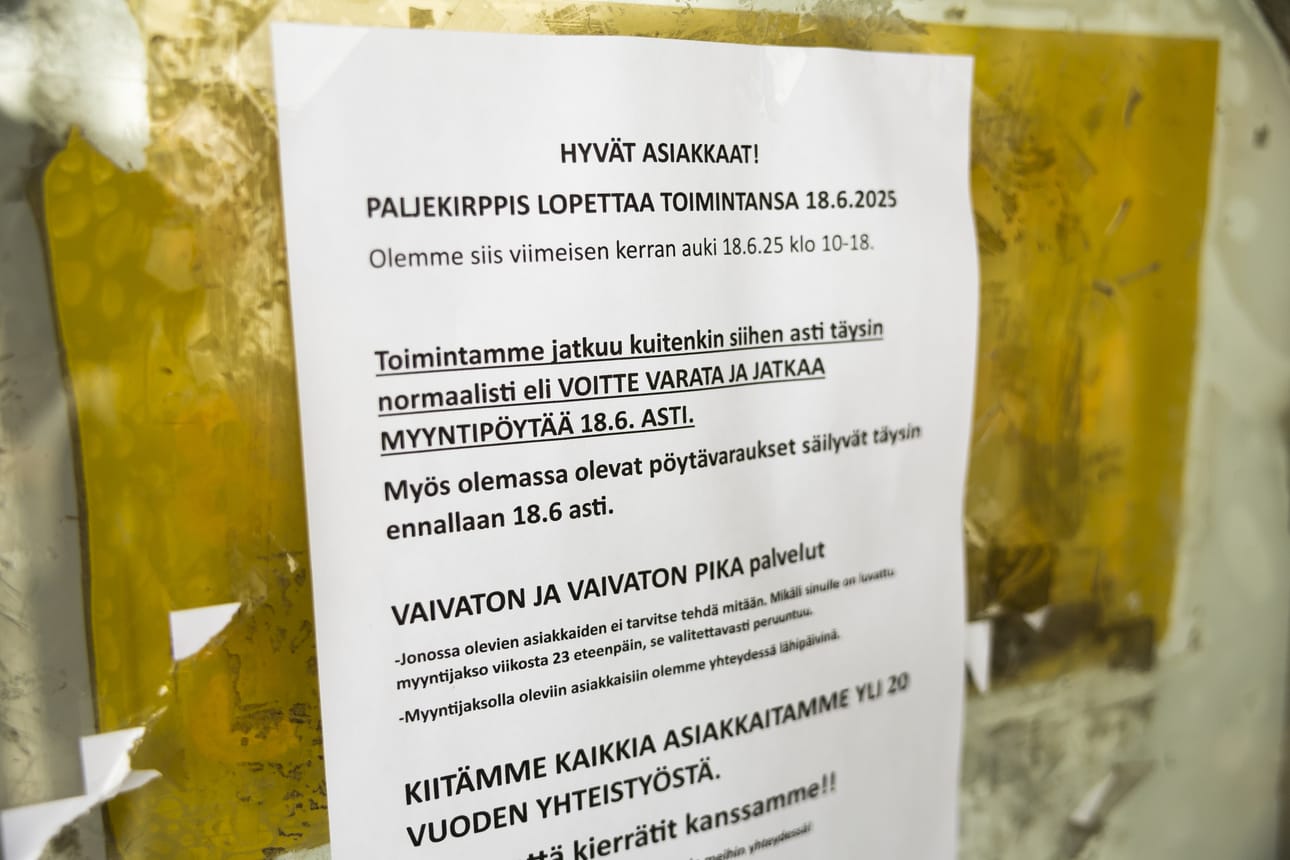 HYVÄT ASIAKKAAT!
PALJEKIRPPIS LOPETTAA TOIMINTANSA 18.6.2025
Olemme siis viimeisen kerran auki 18.6.25 klo 10-18.
Toimintamme jatkuu kuitenkin siihen asti täysin
normaalisti eli VOITTE VARATA JA JATKAA
MYYNTIPÖYTÄÄ 18.6. ASTI.
Myös olemassa olevat pöytävaraukset säilyvät täysin
ennallaan 18.6 asti.
VAIVATON JA VAIVATON PIKA palvelut
-Jonossa olevien asiakkaiden ei tarvitse tehdä mitään. Mikäli sinulle on luvattu
myyntijakso viikosta 23 eteenpäin, se valitettavasti peruuntuu.
-Myyntijaksolla oleviin asiakkaisiin olemme yhteydessä lähipäivinä.
KIITÄMME KAIKKIA ASIAKKAITAMME YLI 20
VUODEN YHTEISTYÖSTÄ.
kierrätit kanssamme!!
meihin yhteydessä!